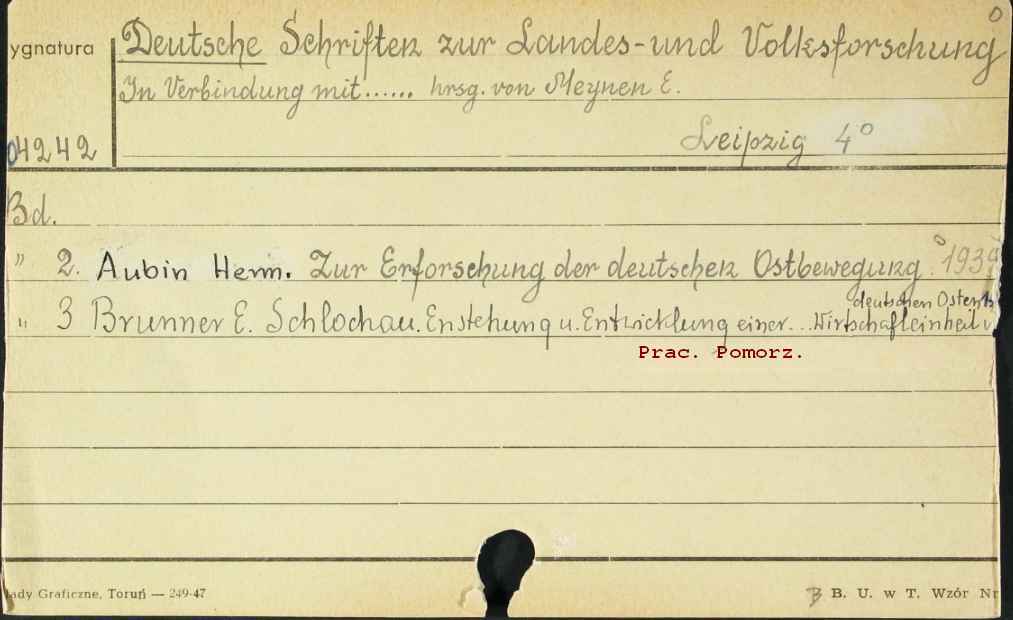 ygnatura Deutsche Schriften zur Landes-und Volksforschung 0
In Verbindung mit...... hrsg. von Meynen E.
04242 Leipzig 4°
Bd.
" 2. Aubin Herm. Zur Erforschung der deutschen Ostbewegung. 1939
deutschen Ostens
" 3 Brunner E. Schlochau. Enstehung u. Entwicklung einer... Wirtschafteinheit
Prac. Pomorz.
łady Graficzne, Toruń — 249-47 B. U. w T. Wzór Nr